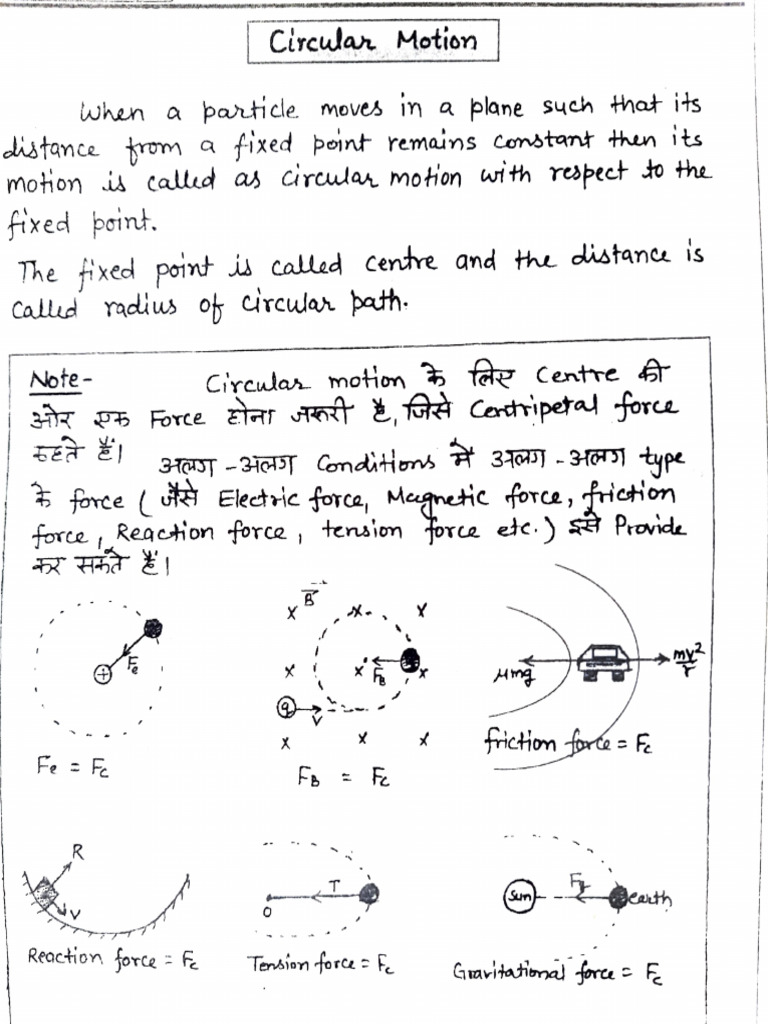 Circular Motion
When a particle moves in a plane such that its
distance from a fixed point remains constant then its
motion is called as circular motion with respect to the
fixed point.
The fixed point is called centre and the distance is
called radius of circular path.
Note- Circular motion के लिए Centre की
ओर एक Force होना जरूरी है, जिसे Centripetal force
कहते हैं।
अलग-अलग Conditions में अलग-अलग type
के force ( जैसे Electric force, Magnetic force, friction
force, Reaction force, tension force etc.) इसे Provide
कर सकते हैं।
+ Fe
Fe = Fc
x B x x
x x FB x
q V
x x x
FB = Fc
μmg mv²/r
friction force = Fc
R
V
Reaction force = Fc
T
O
Tension force = Fc
Sun earth
Gravitational force = Fc